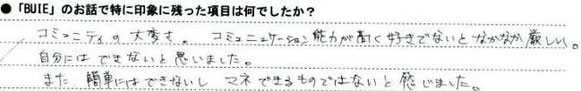 ●「BUIE」のお話で特に印象に残った項目は何でしたか？
コミュニティの大変さ。コミュニュケーション能力が高く好きでないとなかなか厳しい。
自分にはできないと思いました。
また、簡単にはできないし マネできるものではないと感じました。